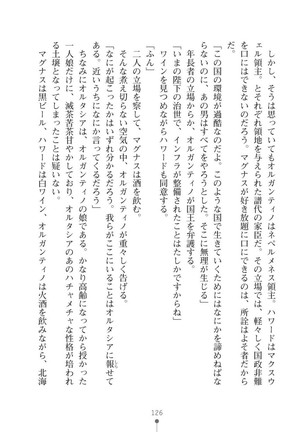 しかし、そうは思っていてもオルガンティノはネベルメネス領主。ハワードはマクスウ
ェル領主。とそれぞれ領地を与えられた譜代の家臣だ。その立場では、軽々しく国政非難
を口にはできないのだろう。マグナスが好き放題に口にできるのは、所詮はよそ者だから
だ。
「この国の環境が過酷なのだよ。このような国で生きていくためにはなにかを諦めねばな
らないのに、あの男はすべてをやろうとした。そこに無理が生じる」
年長者の立場からか、オルガンティノが国王を弁護する。
「いまの陛下の治世で、インフラが整備されたことはたしかですからね」
ワインを見つめながらハワードも同意する。
「ふん」
二人の立場を察して、マグナスは酒を飲む。
そんな煮え切らない空気の中、オルガンティノが重々しく告げる。
「なにが起こったかはいずれ分かるだろう。我らがここにいることはオルタシアに報せて
ある。近いうちになにか言ってくるだろう」
ちなみにオルタシアは、オルガンティノの娘である。かなり高齢になってから授かった
一人娘だけに、滅茶苦茶甘やかしており、オルタシアのあのハチャメチャな性格が培われ
る土壌となってしまったことは疑いない。
マグナスは黒ビール、ハワードは白ワイン、オルガンティノは火酒を飲みながら、北海
126